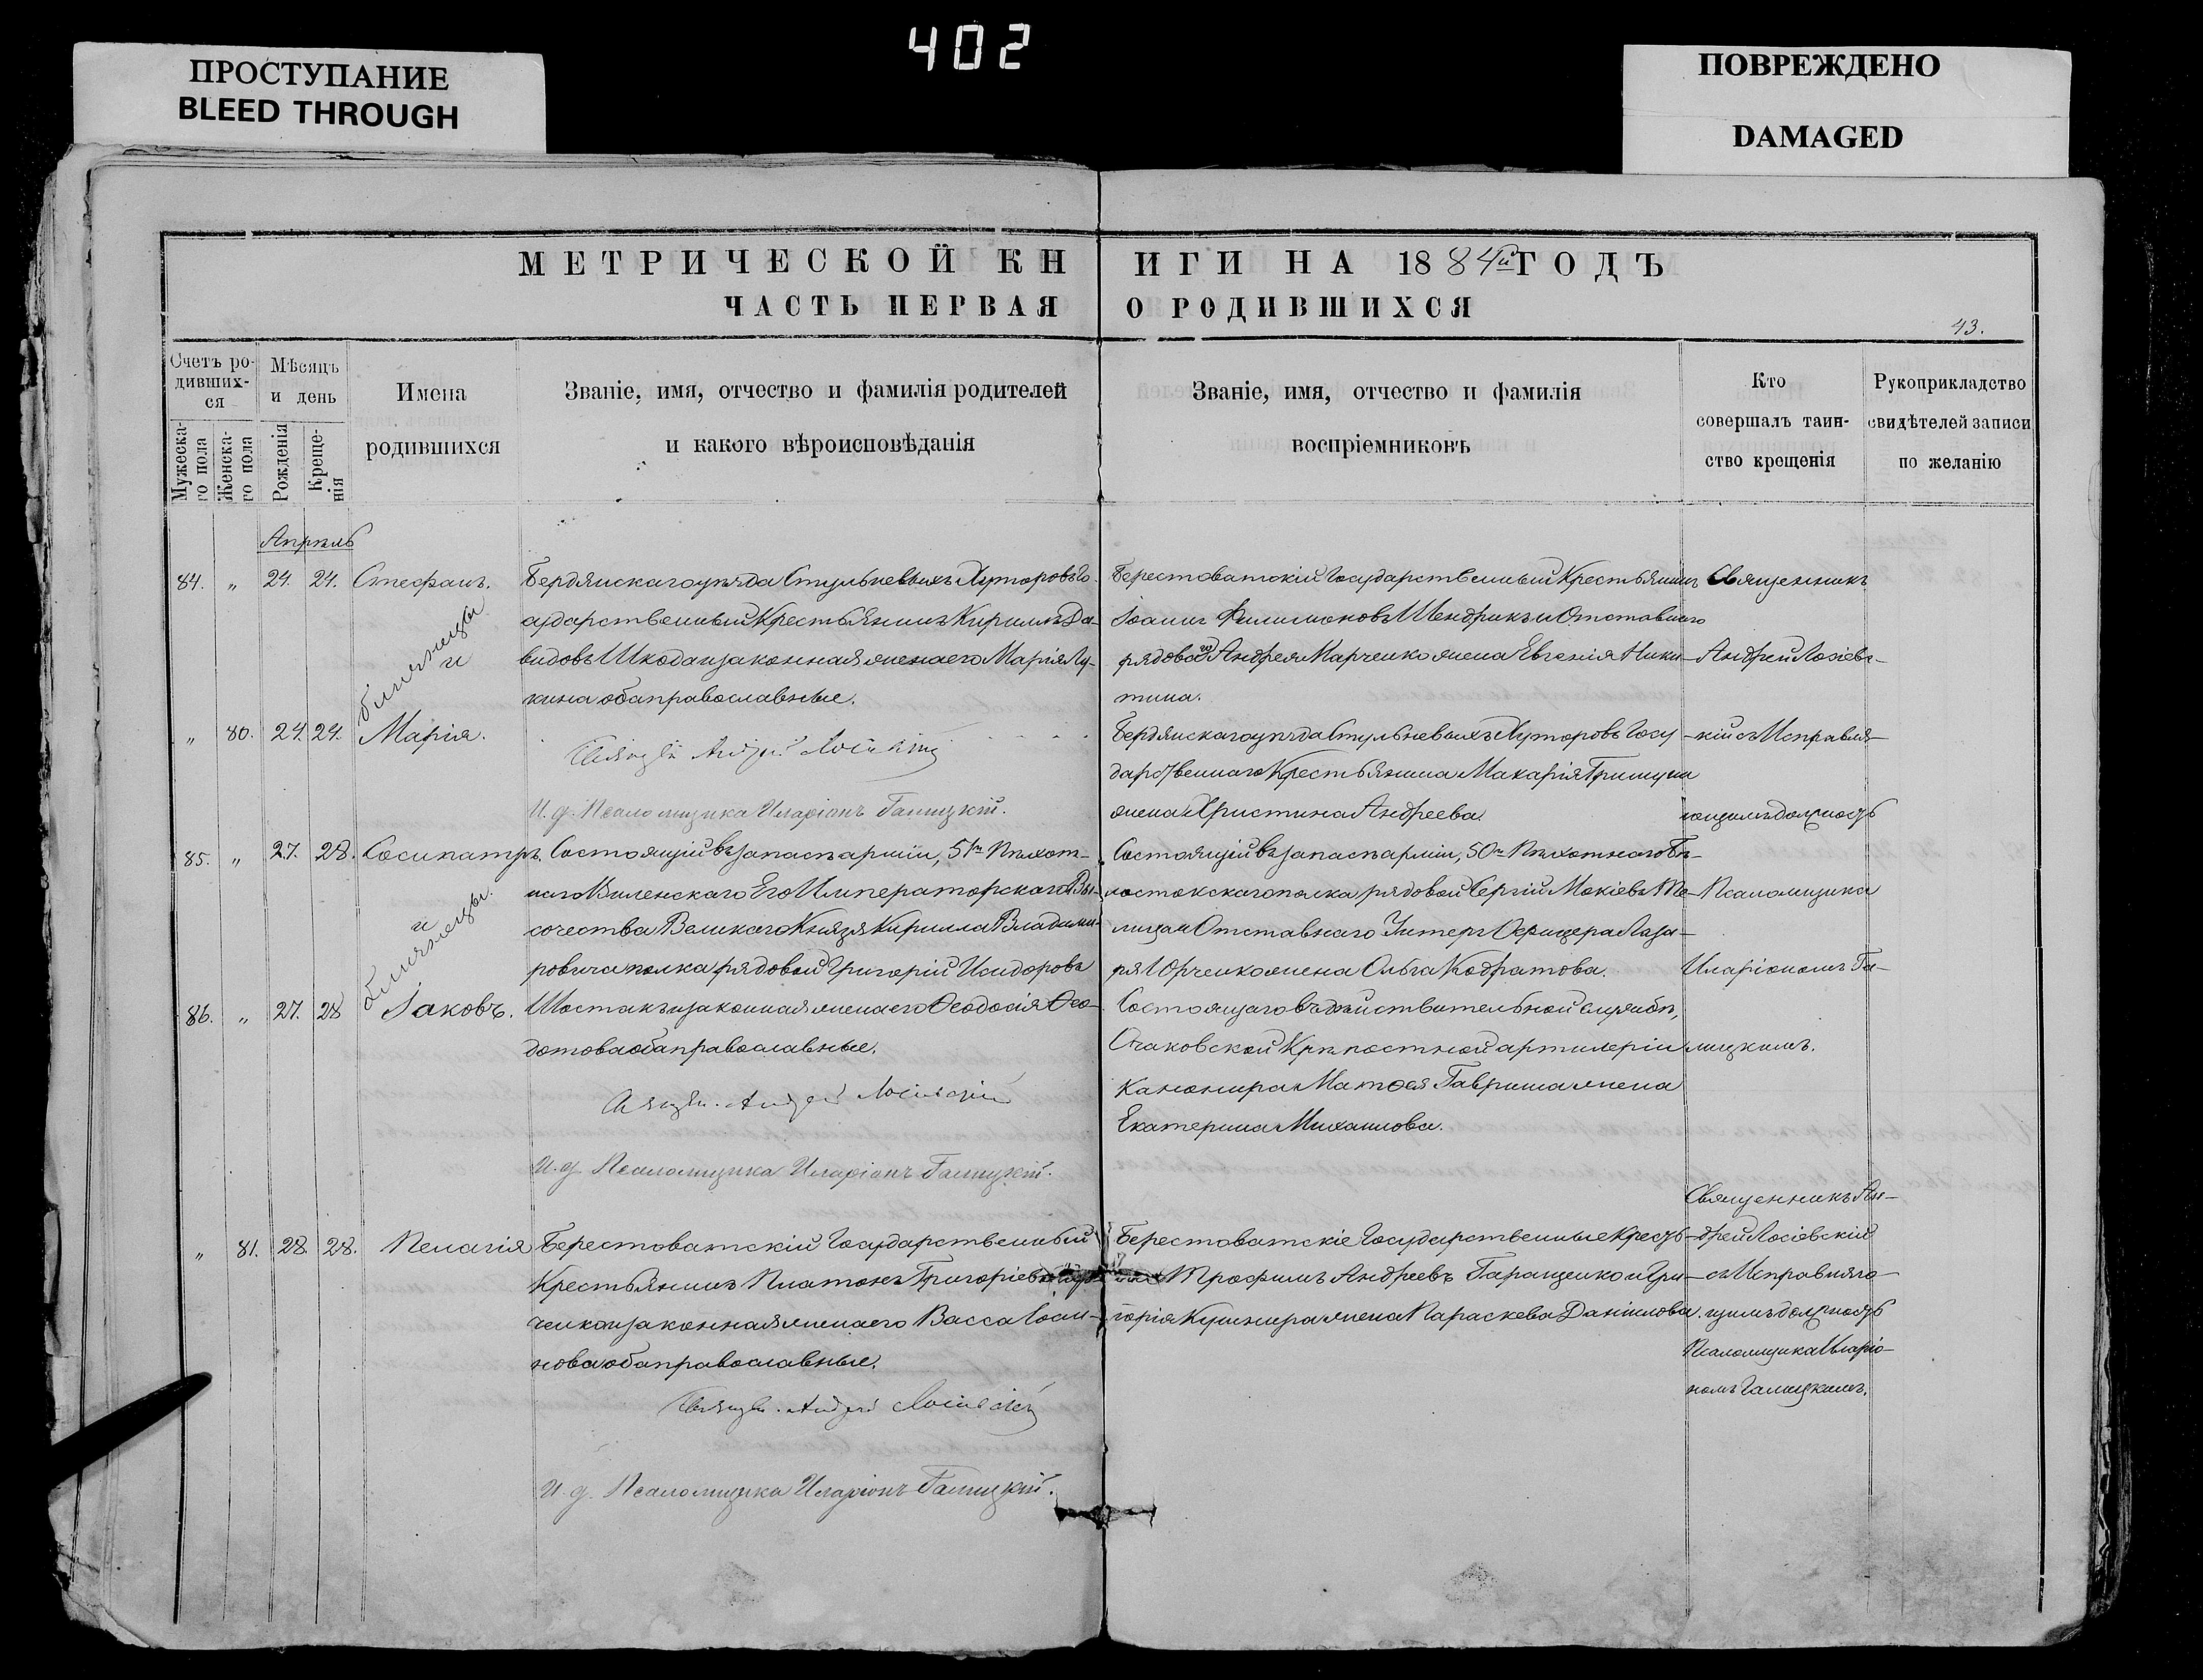 402
ПРОСТУПАНИЕ
BLEED THROUGH
ПОВРЕЖДЕНО
DAMAGED
МЕТРИЧЕСКОЙ КН
ИГИ НА 1884й ГОДЪ
ЧАСТЬ ПЕРВАЯ
О РОДИВШИХСЯ
43.
Счетъ ро-
дивших-
ся
Мужеска-
го пола
Женска-
го пола
Мѣсяцъ
и день
Рожденія
Креще-
нія
Имена
родившихся
Званіе, имя, отчество и фамилія родителей
и какого вѣроисповѣданія
Званіе, имя, отчество и фамилія
воспріемниковъ
Кто
совершалъ таин-
ство крещенія
Рукоприкладство
свидѣтелей записи
по желанію
Апрѣль
84. „ 24. 24. Стефанъ.
близнецы
и
Бердянскаго уѣзда Стульневыхъ Хуторовъ Го-
сударственный Крестьянинъ Кириллъ Да-
видовъ Шкода и законная жена его Марія Лу-
кина оба православные.
Берестоватскій Государственный Крестьянинъ
Іоаннъ Филимоновъ Шендрикъ и Отставнаго
рядоваго Андрея Марченко жена Евгенія Ники-
тина.
„ 80. 24. 24. Марія.
Священ. Андрей Лосіевскій
И. д. Псаломщика Иларіонъ Галицкій.
Бердянскаго уѣзда Стульневыхъ Хуторовъ Госу-
дарственнаго Крестьянина Макарія Грищуна
жена Христина Андреева.
Священникъ
Андрей Лосіевс-
кій съ Исправля-
ющимъ должность
Псаломщика
Иларіономъ Га-
лицкимъ.
85. „ 27. 28. Сосипатръ.
и
близнецы.
86. „ 27. 28 Іаковъ.
Состоящій въ запасѣ арміи, 51го Пѣхот-
наго Виленскаго Его Императорскаго Вы-
сочества Великаго Князя Кирилла Владими-
ровича полка рядовой Григорій Исидоровъ
Шостакъ и законная жена его Ѳеодосія Ѳео-
дотова оба православные.
Священ. Андрей Лосіевскій
И. д. Псаломщика Иларіонъ Галицкій.
Состоящій въ запасѣ арміи, 50го Пѣхотнаго Бѣ-
лостокскаго полка рядовой Сергій Мокіевъ Те-
лица и Отставнаго Унтеръ Офицера Лаза-
ря Юрченко жена Ольга Кодратова.
Состоящаго въ дѣйствительной службѣ,
Очаковской Крѣпостной артилеріи
Канонира Матѳея Гавриша жена
Екатерина Михаилова.
„ 81. 28. 28. Пелагія
Берестоватскій Государственный
Крестьянинъ Платонъ Григоріевъ
ченко и законная жена его Васса Іоан-
нова оба православные.
Священ. Андрей Лосіевскій
И. д. Псаломщика Иларіонъ Галицкій.
Берестоватскіе Государственные Кресть-
яне Трофимъ Андреевъ Гаращенко и Гри-
горія Кушнира жена Параскева Даніилова.
Священникъ Ан-
дрей Лосіевскій
съ Исправляю-
щимъ должность
Псаломщика Иларіо-
номъ Галицкимъ.